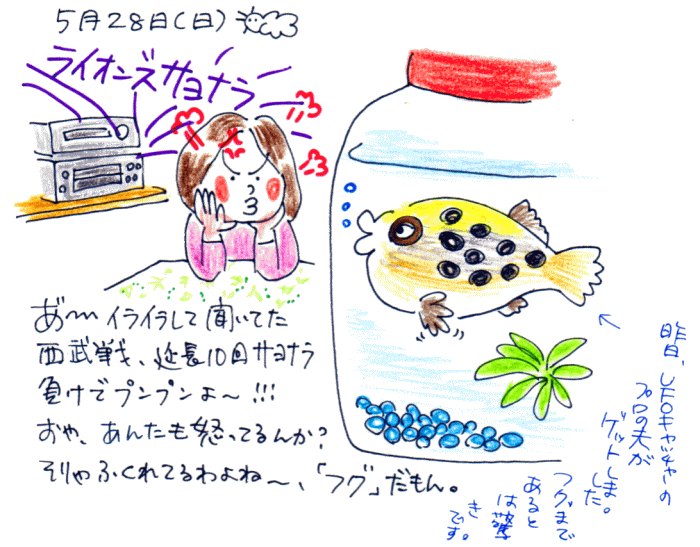 5月28日(日)
ライオンズサヨナラ
あ〜イライラして聞いてた
西武戦、延長10回サヨナラ
負けでプンプンよ〜!!!
おや、あんたも怒ってるんか?
そりゃふくれてるわよね〜、「フグ」だもん。
昨日、UFOキャッチャーの
プロの夫が
ゲットしました。
フグまで
あると
は驚
きです。